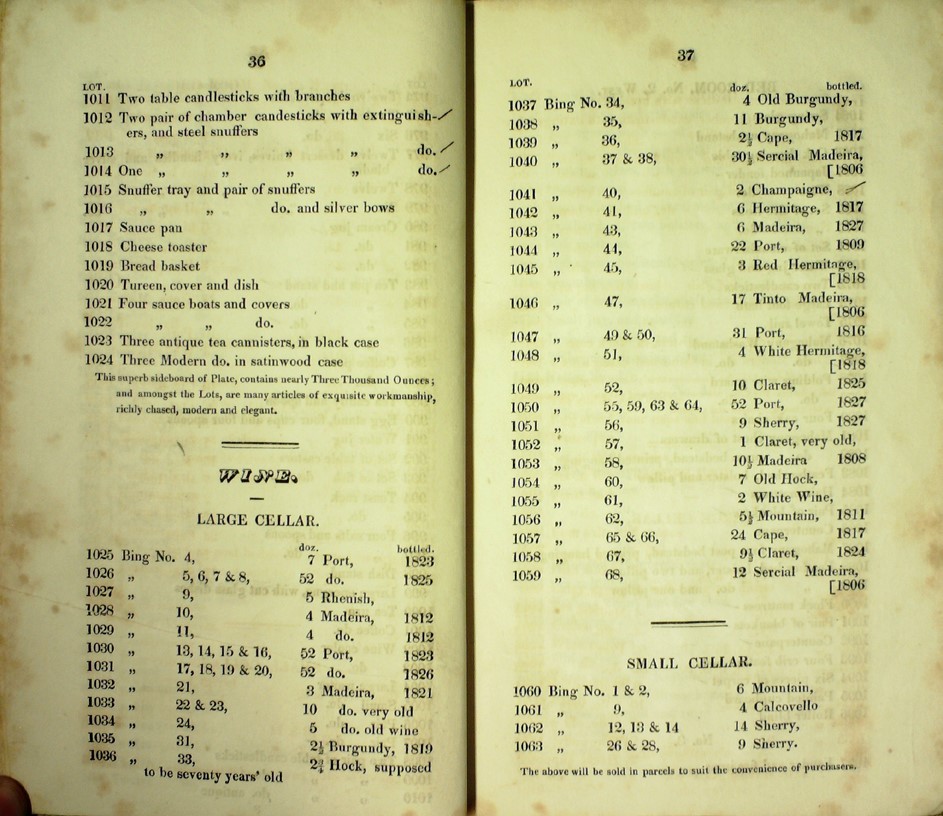 36
LOT.
1011 Two table candlesticks with branches
1012 Two pair of chamber candesticks with extinguish-
ers, and steel snuffers
1013 „ „ „ „ do.
1014 One „ „ „ „ do.
1015 Snuffer tray and pair of snuffers
1016 „ „ do. and silver bows
1017 Sauce pan
1018 Cheese toaster
1019 Bread basket
1020 Tureen, cover and dish
1021 Four sauce boats and covers
1022 „ „ do.
1023 Three antique tea cannisters, in black case
1024 Three Modern do. in satinwood case
This superb sideboard of Plate, contains nearly Three Thousand Ounces;
and amongst the Lots, are many articles of exquisite workmanship,
richly chased, modern and elegant.
WINE.
LARGE CELLAR.
doz. bottled.
1025 Bing No. 4, 7 Port, 1823
1026 „ 5, 6, 7 & 8, 52 do. 1825
1027 „ 9, 5 Rhenish,
1028 „ 10, 4 Madeira, 1812
1029 „ 11, 4 do. 1812
1030 „ 13, 14, 15 & 16, 52 Port, 1823
1031 „ 17, 18, 19 & 20, 52 do. 1826
1032 „ 21, 3 Madeira, 1821
1033 „ 22 & 23, 10 do. very old
1034 „ 24, 5 do. old wine
1035 „ 31, 2½ Burgundy, 1819
1036 „ 33, Hock, supposed
to be seventy years' old
37
LOT. doz. bottled.
1037 Bing No. 34, 4 Old Burgundy,
1038 „ 35, 11 Burgundy,
1039 „ 36, 2½ Cape, 1817
1040 „ 37 & 38, 30½ Sercial Madeira,
[1806
1041 „ 40, 2 Champaigne,
1042 „ 41, 6 Hermitage, 1817
1043 „ 43, 6 Madeira, 1827
1044 „ 44, 22 Port, 1809
1045 „ 45, 3 Red Hermitage,
[1818
1046 „ 47, 17 Tinto Madeira,
[1806
1047 „ 49 & 50, 31 Port, 1816
1048 „ 51, 4 White Hermitage,
[1818
1049 „ 52, 10 Claret, 1825
1050 „ 55, 59, 63 & 64, 52 Port, 1827
1051 „ 56, 9 Sherry, 1827
1052 „ 57, 1 Claret, very old,
1053 „ 58, 10½ Madeira 1808
1054 „ 60, 7 Old Hock,
1055 „ 61, 2 White Wine,
1056 „ 62, 5½ Mountain, 1811
1057 „ 65 & 66, 24 Cape, 1817
1058 „ 67, 9½ Claret, 1824
1059 „ 68, 12 Sercial Madeira,
[1806
SMALL CELLAR.
1060 Bing No. 1 & 2, 6 Mountain,
1061 „ 9, 4 Calcovello
1062 „ 12, 13 & 14 14 Sherry,
1063 „ 26 & 28, 9 Sherry.
The above will be sold in parcels to suit the convenience of purchasers.